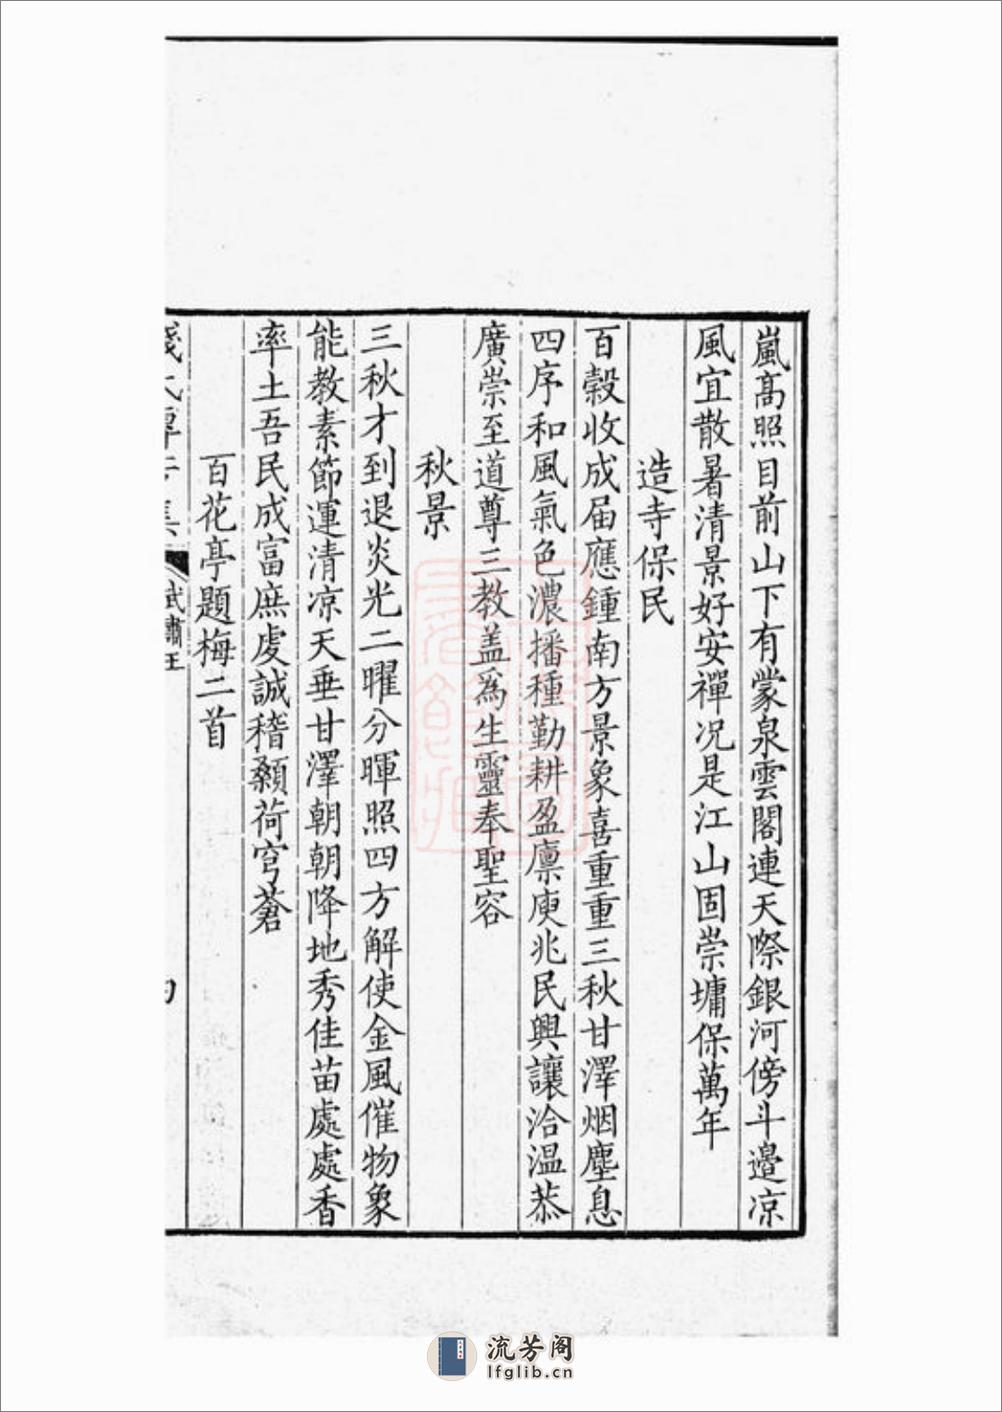 嵐髙照目前山下有蒙泉雲閣連天際銀河傍斗邉凉
風宜散暑清景好安禪况是江山固崇墉保萬年
造寺保民
百糓收成届應鍾南方景象喜重重三秋甘澤烟塵息
四序和風氣色濃播種勤耕盈廪庾兆民興讓洽温㳟
廣崇至道尊三教盖爲生靈奉聖容
秋景
三秋才到退炎光二曜分暉照四方解使金風催物象
能教素節運清凉天垂甘澤朝朝降地秀佳苗處處香
率土吾民成富庶虔誠稽顙荷穹蒼
百花亭題梅二首
武肅王
流芳阁
lfglib.cn